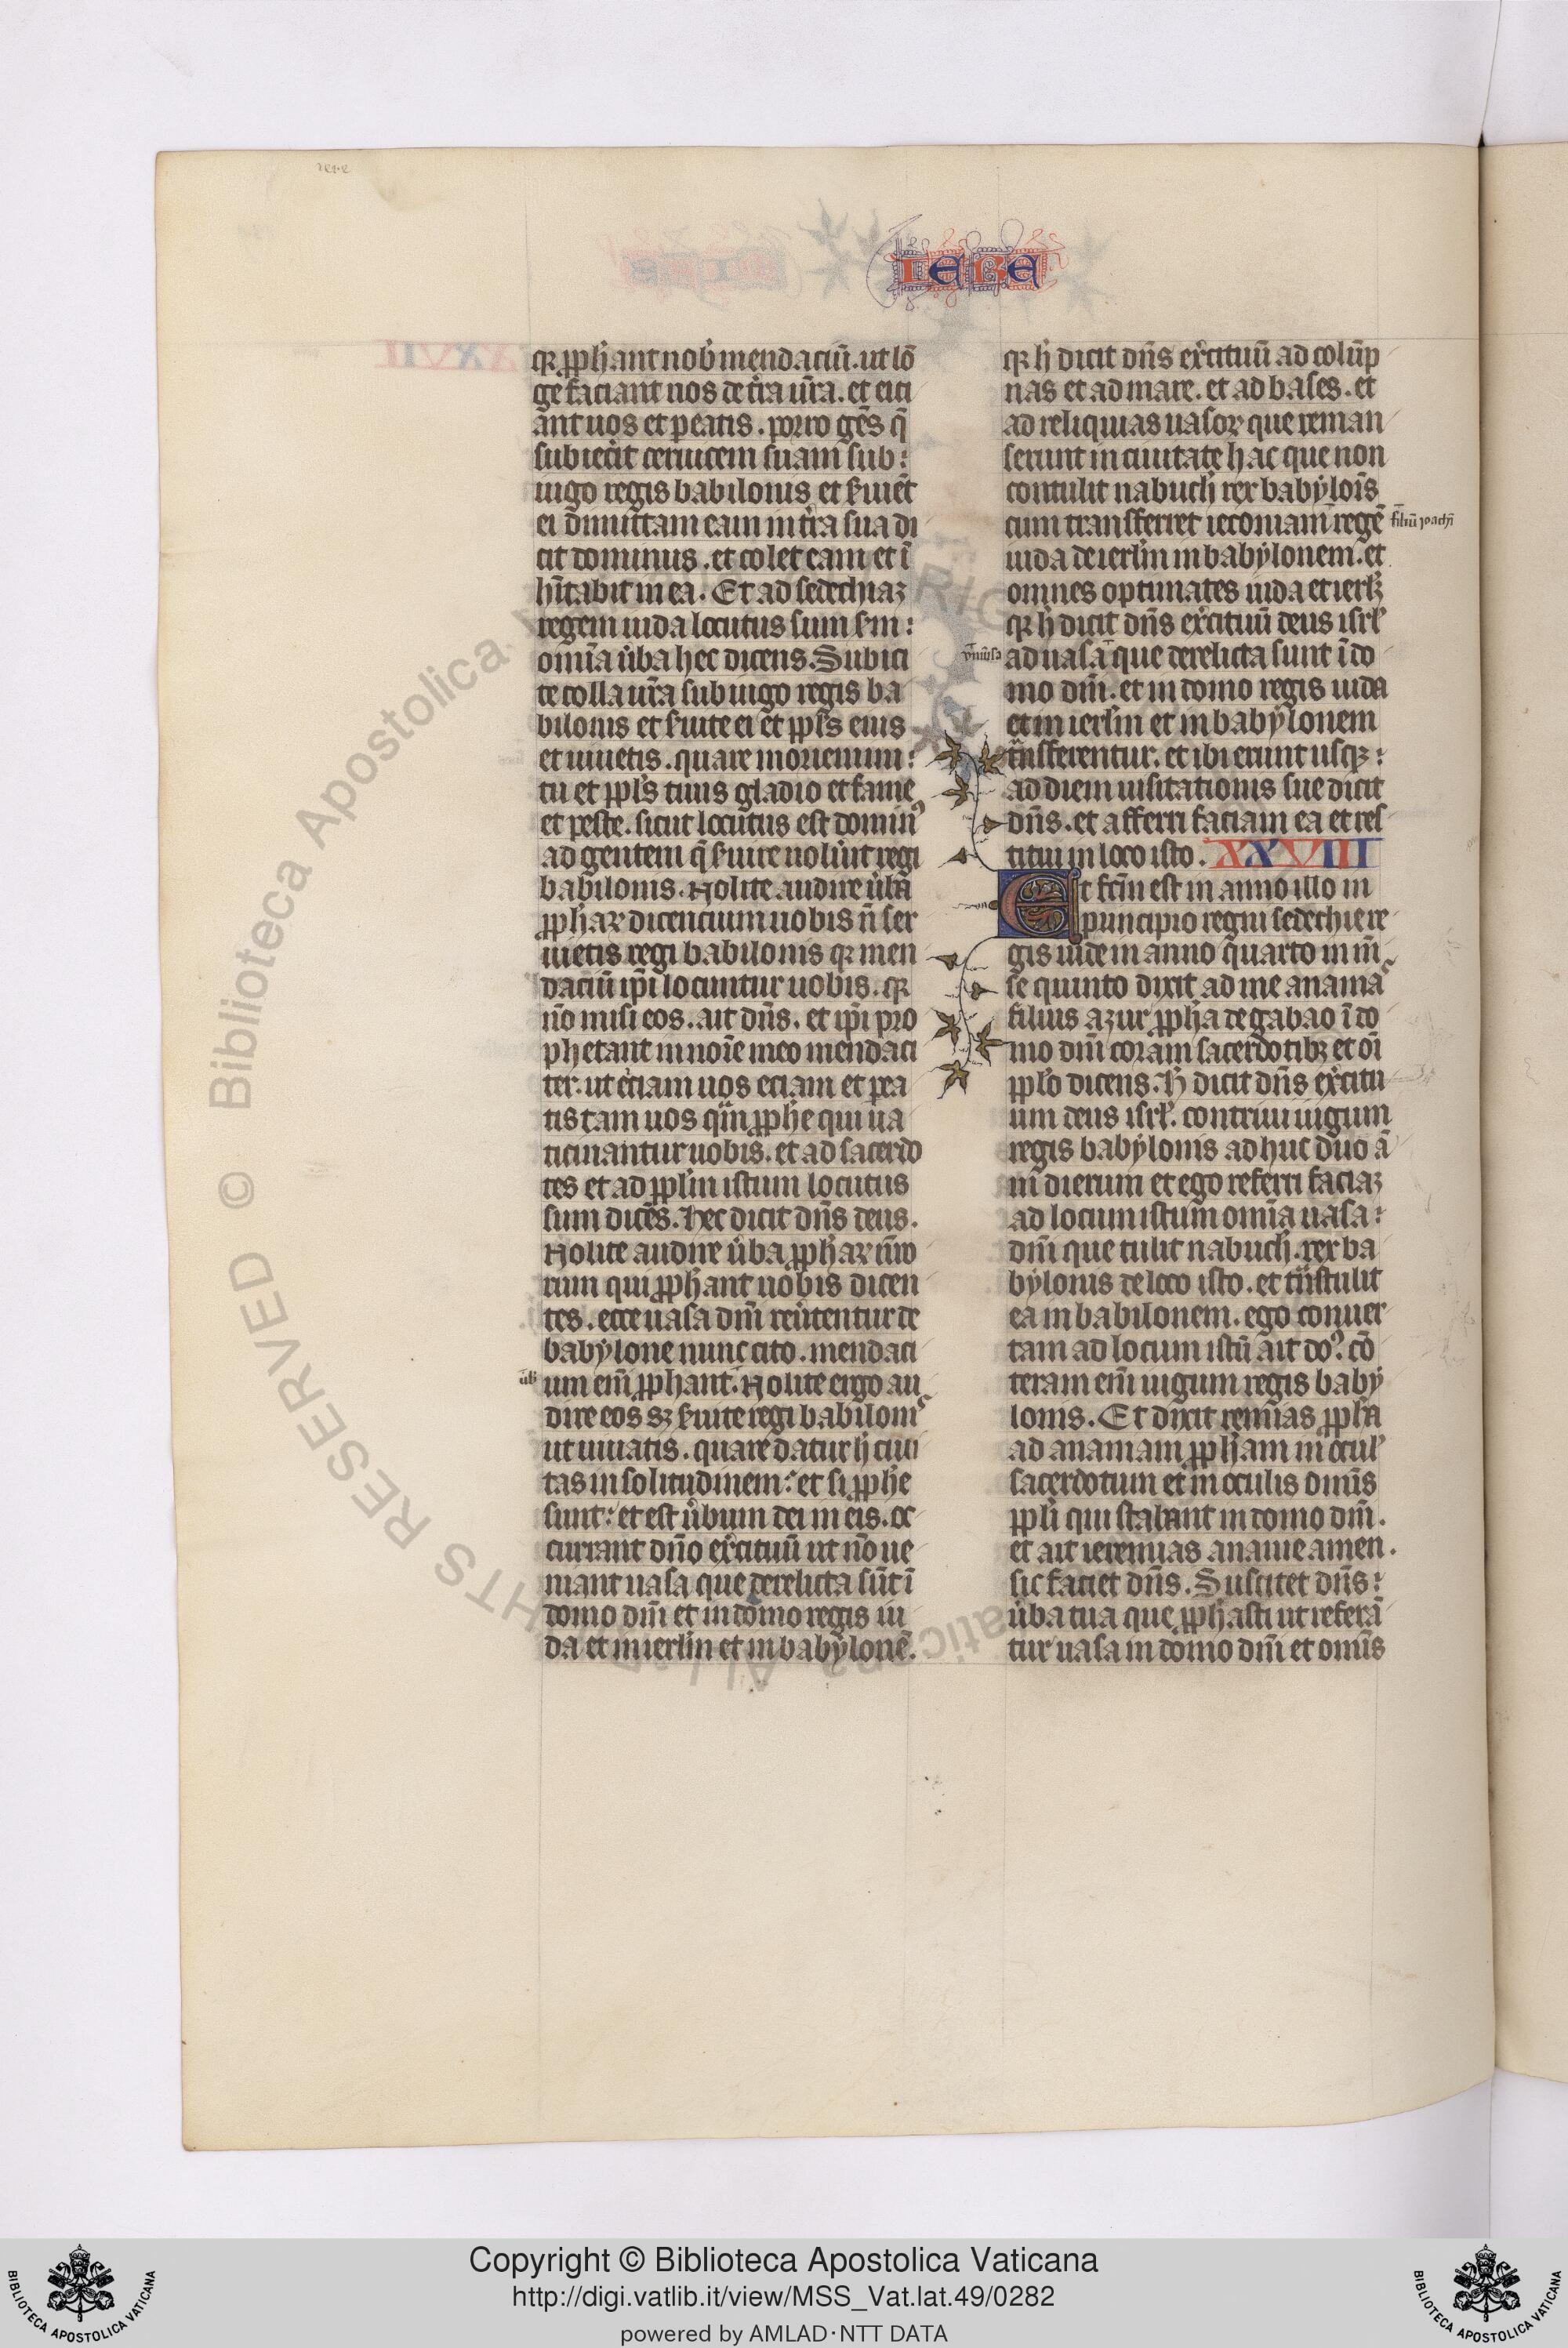 IERE
qꝛ ꝓph̾ant uob̾ mendaciū. ut lō
ge faciant uos de t̾ra ur̄a. et eici
ant uos et p̱eatis. porro gēs q̄
subiec̾it ceruicem suam sub:
iugo regis babilonis et s̾uiet̄
ei dimittam eam in t̾ra sua di
cit dominus. et colet eam et ī
hītabit in ea. Et ad sedechiaꝫ
regem iuda locutus sum s̾m:
om̄ia u̾ba hec dicens. Subici
te colla ur̄a sub iugo regis ba
bilonis et s̾uite ei et ppl̾s eius
et uiuetis. quare moriemini:
tu et ppl̾s tuus gladio et fame
et peste. sicut locutus est dominꝰ
ad gentem q̄ s̾uire nolu̾it regi
babilonis. Nolite audire u̾ba
ꝓph̾aꝝ dicencium uobis n̄ ser
uietis regi babilonis qꝛ men
daciū ip̄i locuntur uobis. qꝛ
nō misi eos. ait dn̄s. et ip̄i pro
phetant in noīe meo mendaci
ter. ut eiciam uos eciam et pea
tis tam uos qͣm ꝓph̾e qui ua
ticinantur uobis. et ad sacerdo
tes et ad ppl̾m istum locutus
sum dicēs. Hec dicit dn̄s deus.
Nolite audire u̾ba ꝓph̾aꝝ ur̄o
rum qui ꝓph̾ant uobis dicen
tes. ecce uasa dn̄i reu̾tentur de
babẏlone nunc cito. mendaci
um em̄ ꝓphant. Nolite ergo au
u̾b
dire eos sꝫ s̾uite regi babiloniˢ
ut uiuatis. quare datur h̾ ciui
tas in solitudinem: et si ꝓph̾e
sunt: et est u̾bum dei in eis. oc
currant dn̄o ex̾cituū ut nō ue
niant uasa que derelicta sūt ī
domo dn̄i et in domo regis iu
da et in ierl̾m et in babẏlonē.
qꝛ h̾ dicit dn̄s ex̾cituū ad colūp
nas et ad mare. et ad bases. et
ad reliquias uasoꝝ que reman
serunt in ciuitate hac que non
contulit nabuch̾ rex babẏloīs
cum transferret ieconiam regē
filiū ioachī
iuda de ierl̾m in babẏlonem. et
omnes optimates iuda et ierl̾ꝫ
qꝛ h̾ dicit dn̄s ex̾cituū deus isrl̾
ad uasa que derelicta sunt ī do
mo dn̄i. et in domo regis iuda
et in ierl̾m et in babẏlonem
tͣnsferentur. et ibi erunt usqꝫ:
ad diem uisitationis sue dicit
dn̄s. et afferri faciam ea et res
titui in loco isto. XXVIII
Et fc̄m est in anno illo in
principio regni sedechie re
gis iude in anno quarto in m̄
se quinto dixit ad me ananiaˢ
filius azur ꝓph̾a de gabao ī do
mo dn̄i coram sacerdotibꝫ et oī
ppl̾o dicens. H̾ dicit dn̄s ex̾citu
um deus isrl̾. contriui iugum
regis babẏlonis adhuc duo ā
ni dierum et ego referri faciaꝫ
ad locum istum om̄ia uasa:
dn̄i que tulit nabuch̾. rex ba
bẏlonis de loco isto. et tͣnstulit
ea in babilonem. ego conuer
tam ad locum istū ait doꝰ. cō
teram em̄ iugum regis babẏ
lonis. Et dixit iemīas ꝓph̾a
ad ananiam ꝓph̾am in ocul̾
sacerdotum et in oculis om̄is
ppl̾i qui stabant in domo dn̄i.
et ait ieremias ananie amen.
sic faciet dn̄s. Suscitet dn̄s:
u̾ba tua que ꝓph̾asti ut referā
tur uasa in domo dn̄i et om̄is
© Biblioteca Apostolica Vaticana ALL RIGHTS RESERVED
Copyright © Biblioteca Apostolica Vaticana
http://digi.vatlib.it/view/MSS_Vat.lat.49/0282
powered by AMLAD·NTT DATA
BIBLIOTECA APOSTOLICA VATICANA
BIBLIOTECA APOSTOLICA VATICANA